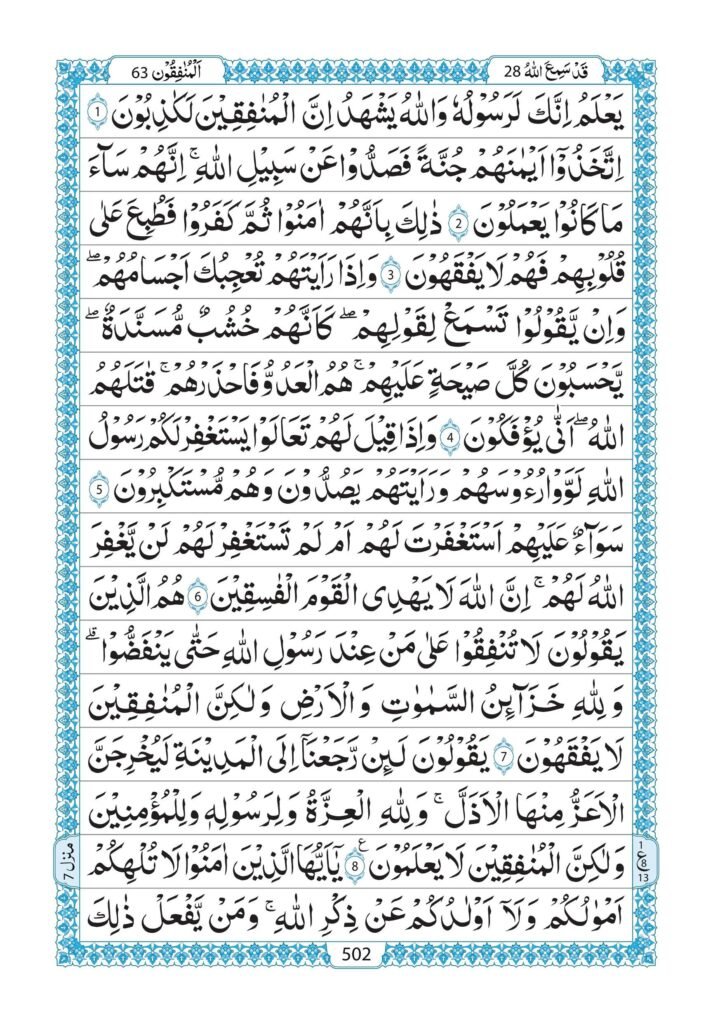 قَدْ سَمِعَ اللّٰهُ 28
اَلْمُنٰفِقُوْن 63
يَعْلَمُ اِنَّكَ لَرَسُوْلُهٗ وَاللّٰهُ يَشْهَدُ اِنَّ الْمُنٰفِقِيْنَ لَكٰذِبُوْنَ 1
اِتَّخَذُوْٓا اَيْمٰنَهُمْ جُنَّةً فَصَدُّوْا عَنْ سَبِيْلِ اللّٰهِ ۚ اِنَّهُمْ سَآءَ
مَا كَانُوْا يَعْمَلُوْنَ 2 ذٰلِكَ بِاَنَّهُمْ اٰمَنُوْا ثُمَّ كَفَرُوْا فَطُبِعَ عَلٰى
قُلُوْبِهِمْ فَهُمْ لَا يَفْقَهُوْنَ 3 وَاِذَا رَاَيْتَهُمْ تُعْجِبُكَ اَجْسَامُهُمْ ۖ
وَاِنْ يَّقُوْلُوْا تَسْمَعْ لِقَوْلِهِمْ ۖ كَاَنَّهُمْ خُشُبٌ مُّسَنَّدَةٌ ۖ
يَّحْسَبُوْنَ كُلَّ صَيْحَةٍ عَلَيْهِمْ ۚ هُمُ الْعَدُوُّ فَاحْذَرْهُمْ ۚ قٰتَلَهُمُ
اللّٰهُ ۖ اَنّٰى يُؤْفَكُوْنَ 4 وَاِذَا قِيْلَ لَهُمْ تَعَالَوْا يَسْتَغْفِرْ لَكُمْ رَسُوْلُ
اللّٰهِ لَوَّوْا رُءُوْسَهُمْ وَرَاَيْتَهُمْ يَصُدُّوْنَ وَهُمْ مُّسْتَكْبِرُوْنَ 5
سَوَآءٌ عَلَيْهِمْ اَسْتَغْفَرْتَ لَهُمْ اَمْ لَمْ تَسْتَغْفِرْ لَهُمْ لَنْ يَّغْفِرَ
اللّٰهُ لَهُمْ ۚ اِنَّ اللّٰهَ لَا يَهْدِى الْقَوْمَ الْفٰسِقِيْنَ 6 هُمُ الَّذِيْنَ
يَقُوْلُوْنَ لَا تُنْفِقُوْا عَلٰى مَنْ عِنْدَ رَسُوْلِ اللّٰهِ حَتّٰى يَنْفَضُّوْا ۗ
وَلِلّٰهِ خَزَآئِنُ السَّمٰوٰتِ وَالْاَرْضِ وَلٰكِنَّ الْمُنٰفِقِيْنَ
لَا يَفْقَهُوْنَ 7 يَقُوْلُوْنَ لَئِنْ رَّجَعْنَآ اِلَى الْمَدِيْنَةِ لَيُخْرِجَنَّ
الْاَعَزُّ مِنْهَا الْاَذَلَّ ۚ وَلِلّٰهِ الْعِزَّةُ وَلِرَسُوْلِهٖ وَلِلْمُؤْمِنِيْنَ
وَلٰكِنَّ الْمُنٰفِقِيْنَ لَا يَعْلَمُوْنَ 8 ع يٰٓاَيُّهَا الَّذِيْنَ اٰمَنُوْا لَا تُلْهِكُمْ
اَمْوٰلُكُمْ وَلَآ اَوْلٰدُكُمْ عَنْ ذِكْرِ اللّٰهِ ۚ وَمَنْ يَّفْعَلْ ذٰلِكَ
1
ع 8
13
منزل 7
502